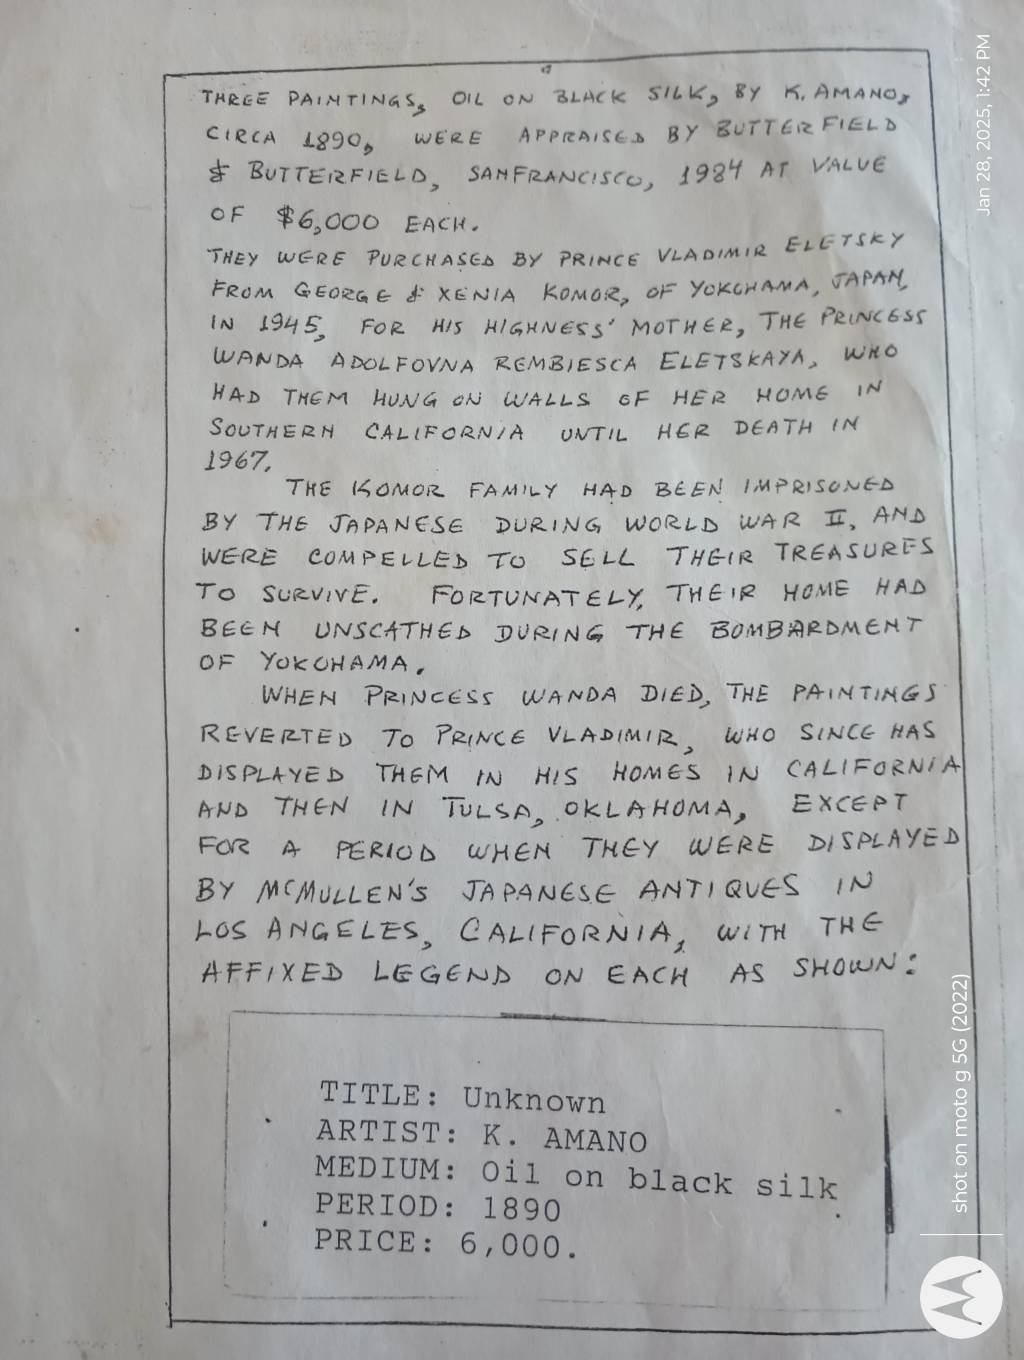 THREE PAINTINGS, OIL ON BLACK SILK, BY K. AMANO,
CIRCA 1890, WERE APPRAISED BY BUTTERFIELD
& BUTTERFIELD, SANFRANCISCO, 1984 AT VALUE
OF $6,000 EACH.
THEY WERE PURCHASED BY PRINCE VLADIMIR ELETSKY
FROM GEORGE & XENIA KOMOR, OF YOKOHAMA, JAPAN,
IN 1945, FOR HIS HIGHNESS' MOTHER, THE PRINCESS
WANDA ADOLFOVNA REMBIESCA ELETSKAYA, WHO
HAD THEM HUNG ON WALLS OF HER HOME IN
SOUTHERN CALIFORNIA UNTIL HER DEATH IN
1967.
THE KOMOR FAMILY HAD BEEN IMPRISONED
BY THE JAPANESE DURING WORLD WAR II, AND
WERE COMPELLED TO SELL THEIR TREASURES
TO SURVIVE. FORTUNATELY, THEIR HOME HAD
BEEN UNSCATHED DURING THE BOMBARDMENT
OF YOKOHAMA.
WHEN PRINCESS WANDA DIED, THE PAINTINGS
REVERTED TO PRINCE VLADIMIR, WHO SINCE HAS
DISPLAYED THEM IN HIS HOMES IN CALIFORNIA
AND THEN IN TULSA, OKLAHOMA, EXCEPT
FOR A PERIOD WHEN THEY WERE DISPLAYED
BY MCMULLEN'S JAPANESE ANTIQUES IN
LOS ANGELES, CALIFORNIA, WITH THE
AFFIXED LEGEND ON EACH AS SHOWN:
TITLE: Unknown
ARTIST: K. AMANO
MEDIUM: Oil on black silk
PERIOD: 1890
PRICE: 6,000.
Jan 28, 2025, 1:42 PM
shot on moto g 5G (2022)